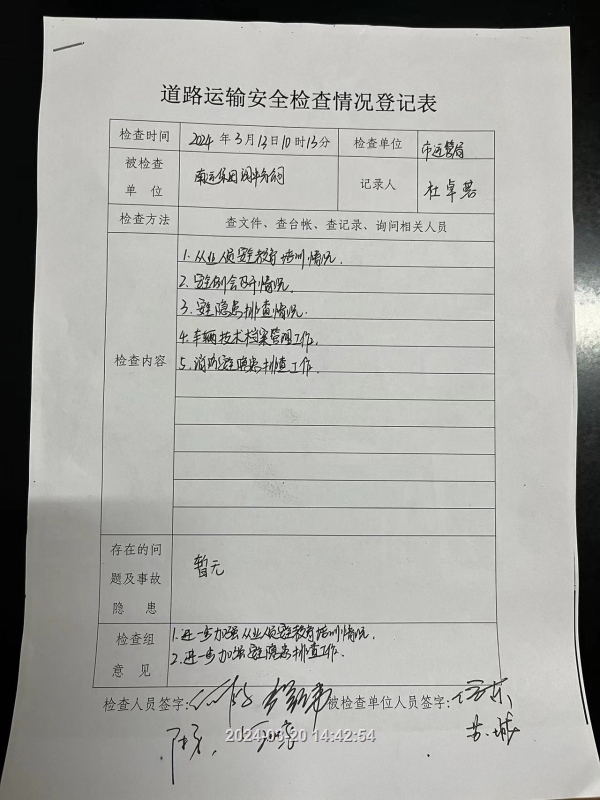 道路运输安全检查情况登记表
检查时间 2024 年 3 月 13 日 10 时 13 分 检查单位 市运管局
被检查单位 南运集团 记录人 杜卓
检查方法 查文件、查台帐、查记录、询问相关人员
检查内容
1. 从业人员安全教育培训情况.
2. 安全例会召开情况.
3. 安全隐患排查情况.
4. 车辆技术档案管理工作.
5. 消防安全隐患排查工作.
存在的问题及事故隐患 暂无
检查组意见
1. 进一步加强从业人员安全教育培训情况.
2. 进一步加强安全隐患排查工作.
检查人员签字: 被检查单位人员签字:
2024-03-20 14:42:54